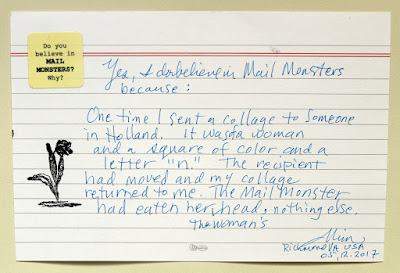 Do you
believe in
MAIL
MONSTERS?
Why?
Yes, I do believe in Mail Monsters
because:
One time I sent a collage to someone
in Holland. It was of a woman
and a square of color and a
letter "n." The recipient
had moved and my collage
returned to me. The Mail Monster
had eaten her head, nothing else.
the woman's
VA USA
05.12.2017